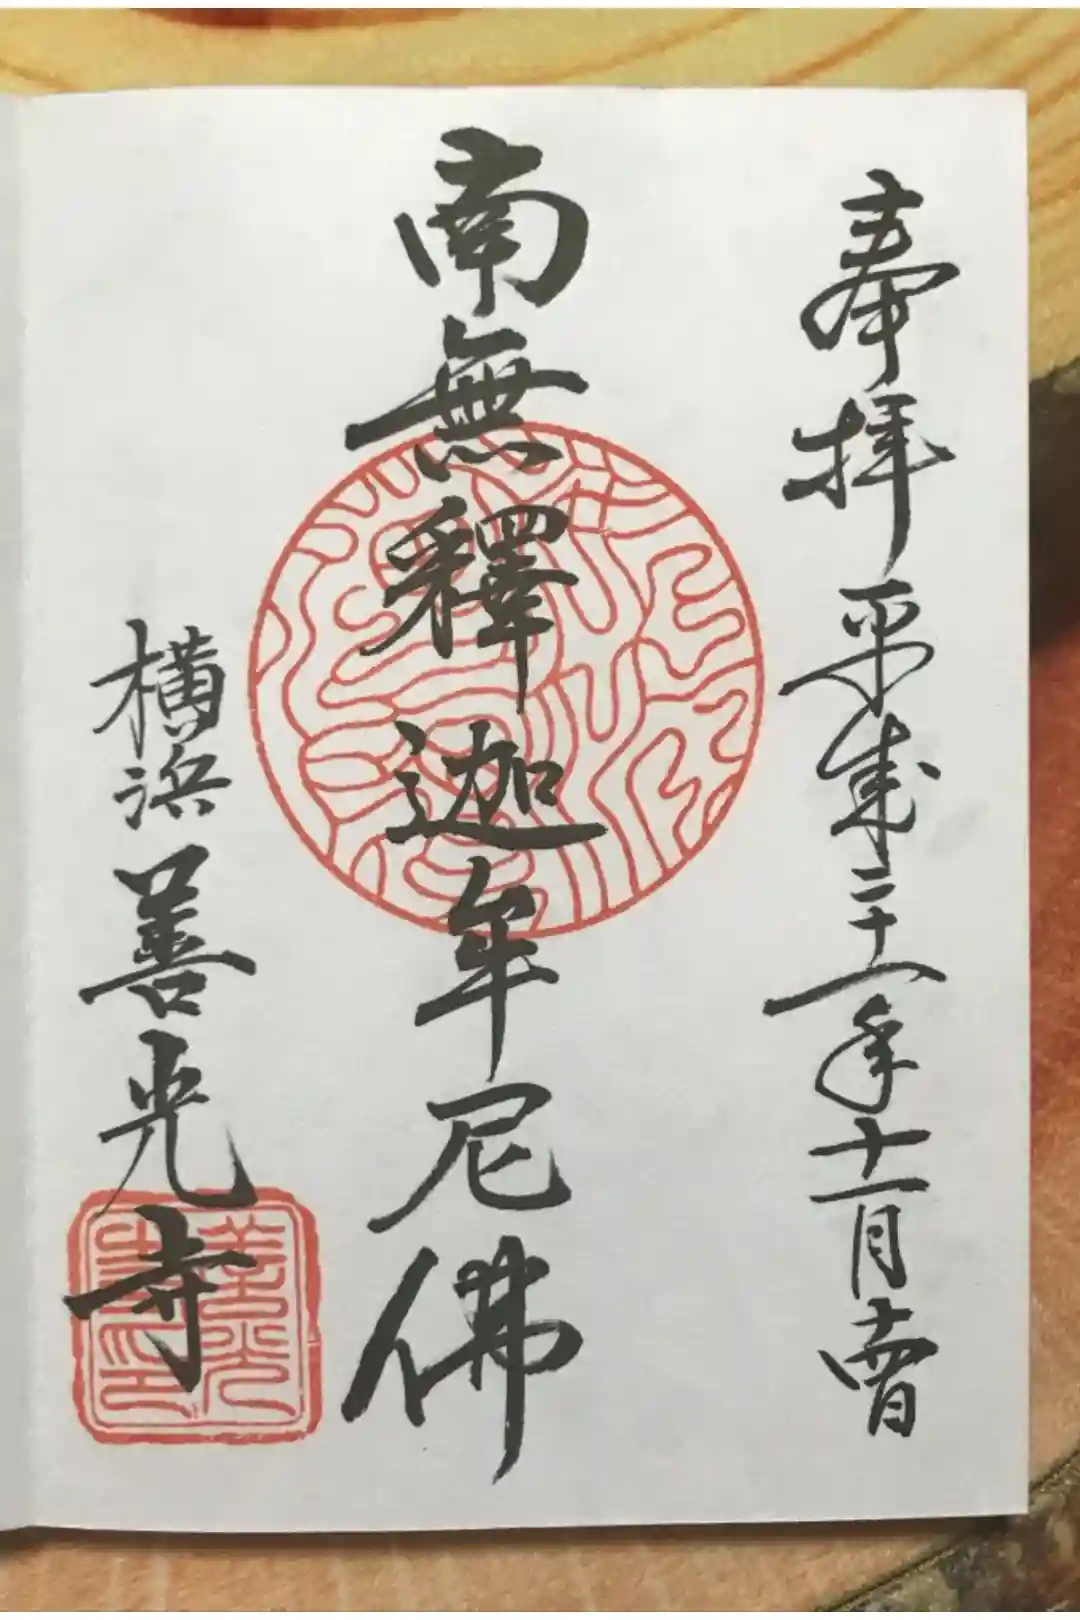 奉拝 平成二十八年十一月十日
南無釋迦牟尼佛
横浜 善光寺
善光
寺印